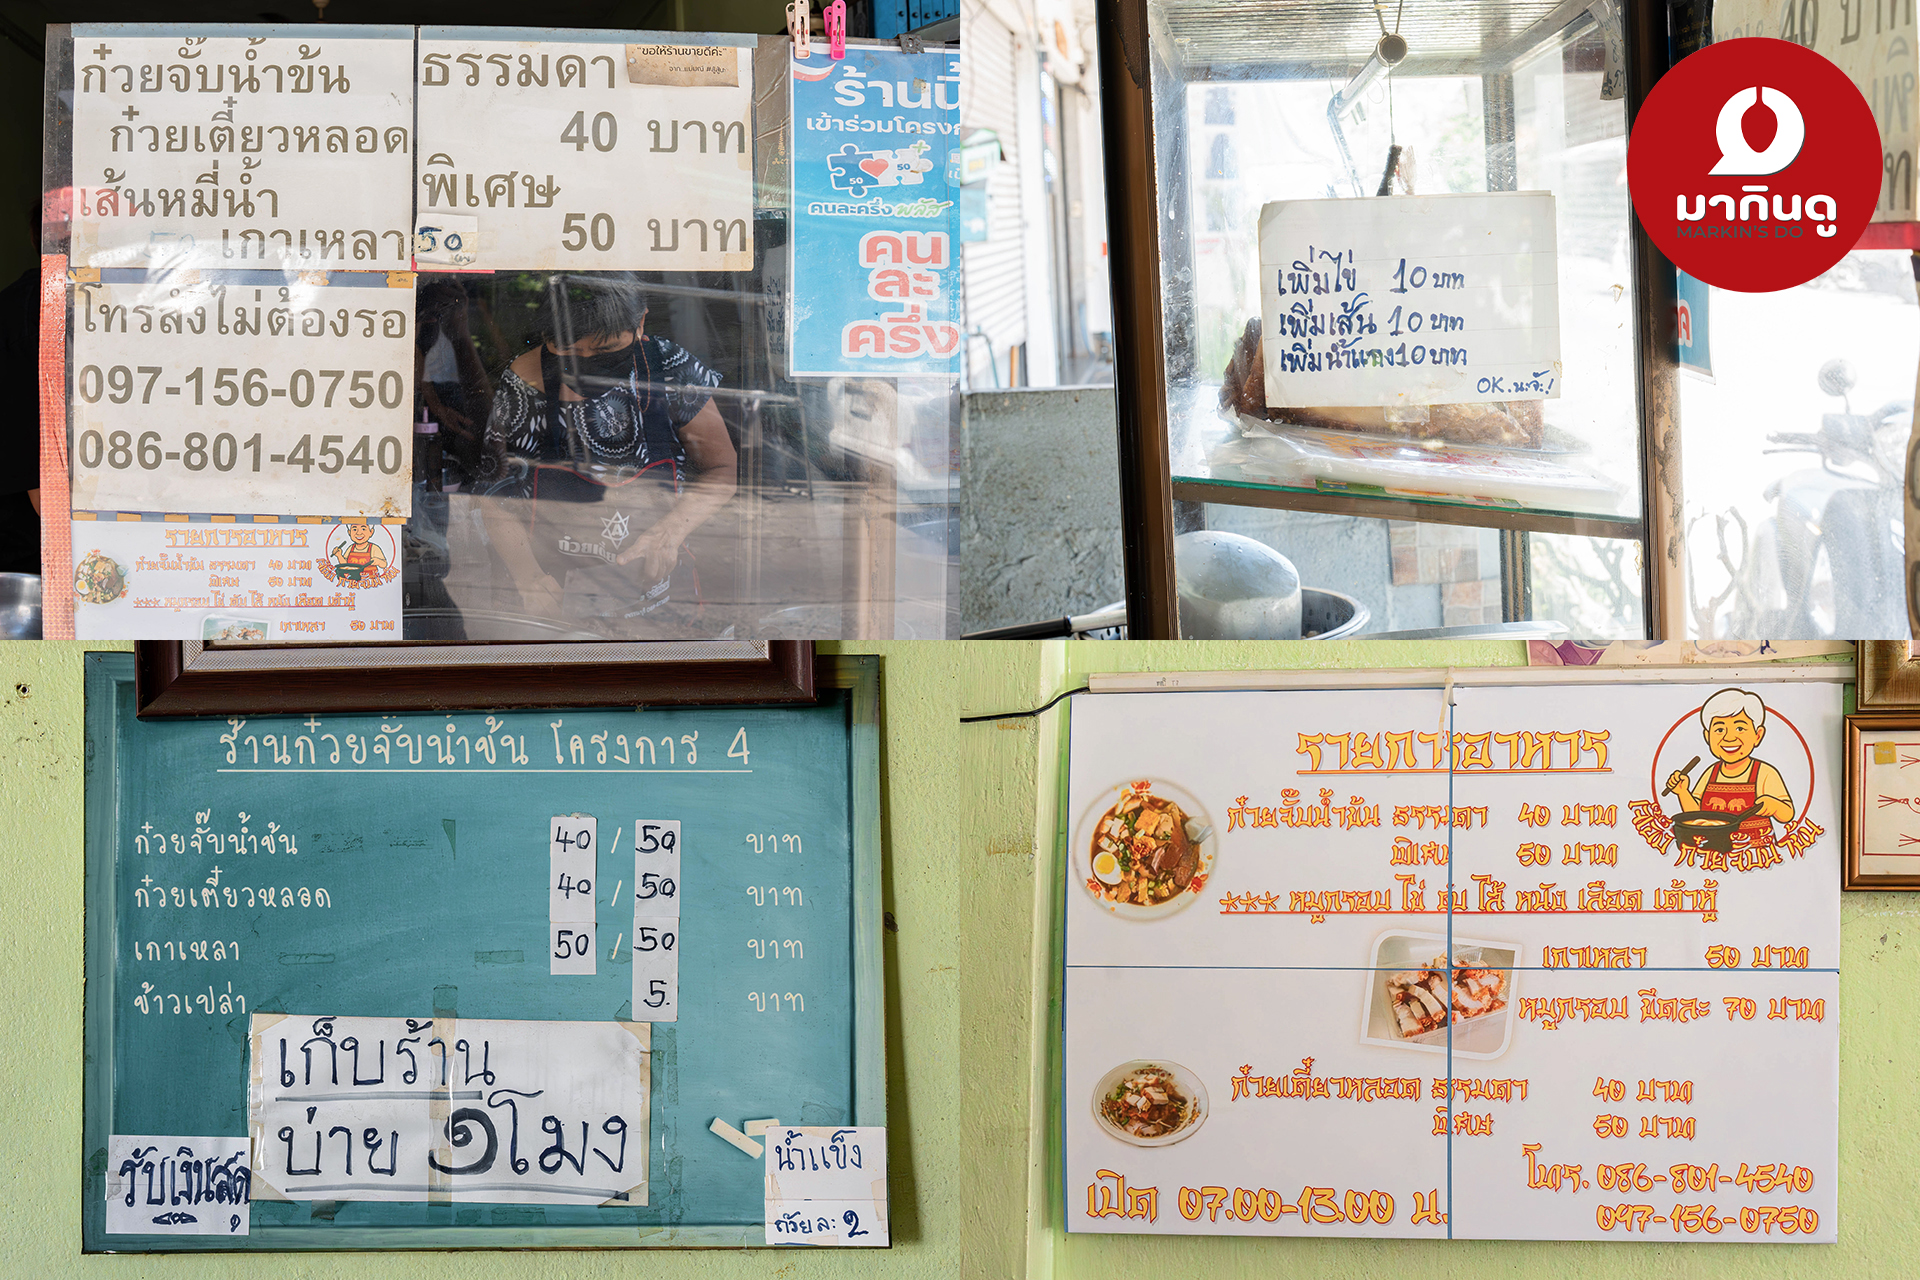 ก๋วยจั๊บน้ำข้น
ก๋วยเตี๋ยวหลอด
เส้นหมี่น้ำ
เกาเหลา
ธรรมดา
40 บาท
พิเศษ
50 บาท
50
"ขอให้ร้านขายดีค่ะ"
โทรสั่งไม่ต้องรอ
097-156-0750
086-801-4540
รายการอาหาร
ก๋วยจั๊บน้ำข้น ธรรมดา 40 บาท
พิเศษ 50 บาท
*** หมูกรอบ ไข่ ตับ ไส้ หนัง เลือด เต้าหู้
เกาเหลา 50 บาท
ร้านนี้
เข้าร่วมโครงก
50
50
คนละครึ่งพลัส
คน
ละ
ครึ่ง
เพิ่มไข่ 10 บาท
เพิ่มเส้น 10 บาท
เพิ่มน้ำแกง 10 บาท
OK.นะจ๊ะ!
มากินดู
MARKIN'S DO
40 บาท
ร้านก๋วยจั๊บน้ำข้น โครงการ 4
ก๋วยจั๊บน้ำข้น 40 / 50 บาท
ก๋วยเตี๋ยวหลอด 40 / 50 บาท
เกาเหลา 50 / 50 บาท
ข้าวเปล่า 5. บาท
เก็บร้าน
บ่าย ๑โมง
รับเงินสด
น้ำแข็ง
ถ้วยละ 2
รายการอาหาร
ก๋วยจั๊บน้ำข้น ธรรมดา 40 บาท
พิเศษ 50 บาท
*** หมูกรอบ ไข่ ตับ ไส้ หนัง เลือด เต้าหู้
เกาเหลา 50 บาท
หมูกรอบ ขีดละ 70 บาท
ก๋วยเตี๋ยวหลอด ธรรมดา 40 บาท
พิเศษ 50 บาท
โทร. 086-801-4540
097-156-0750
เปิด 07.00-13.00 น.